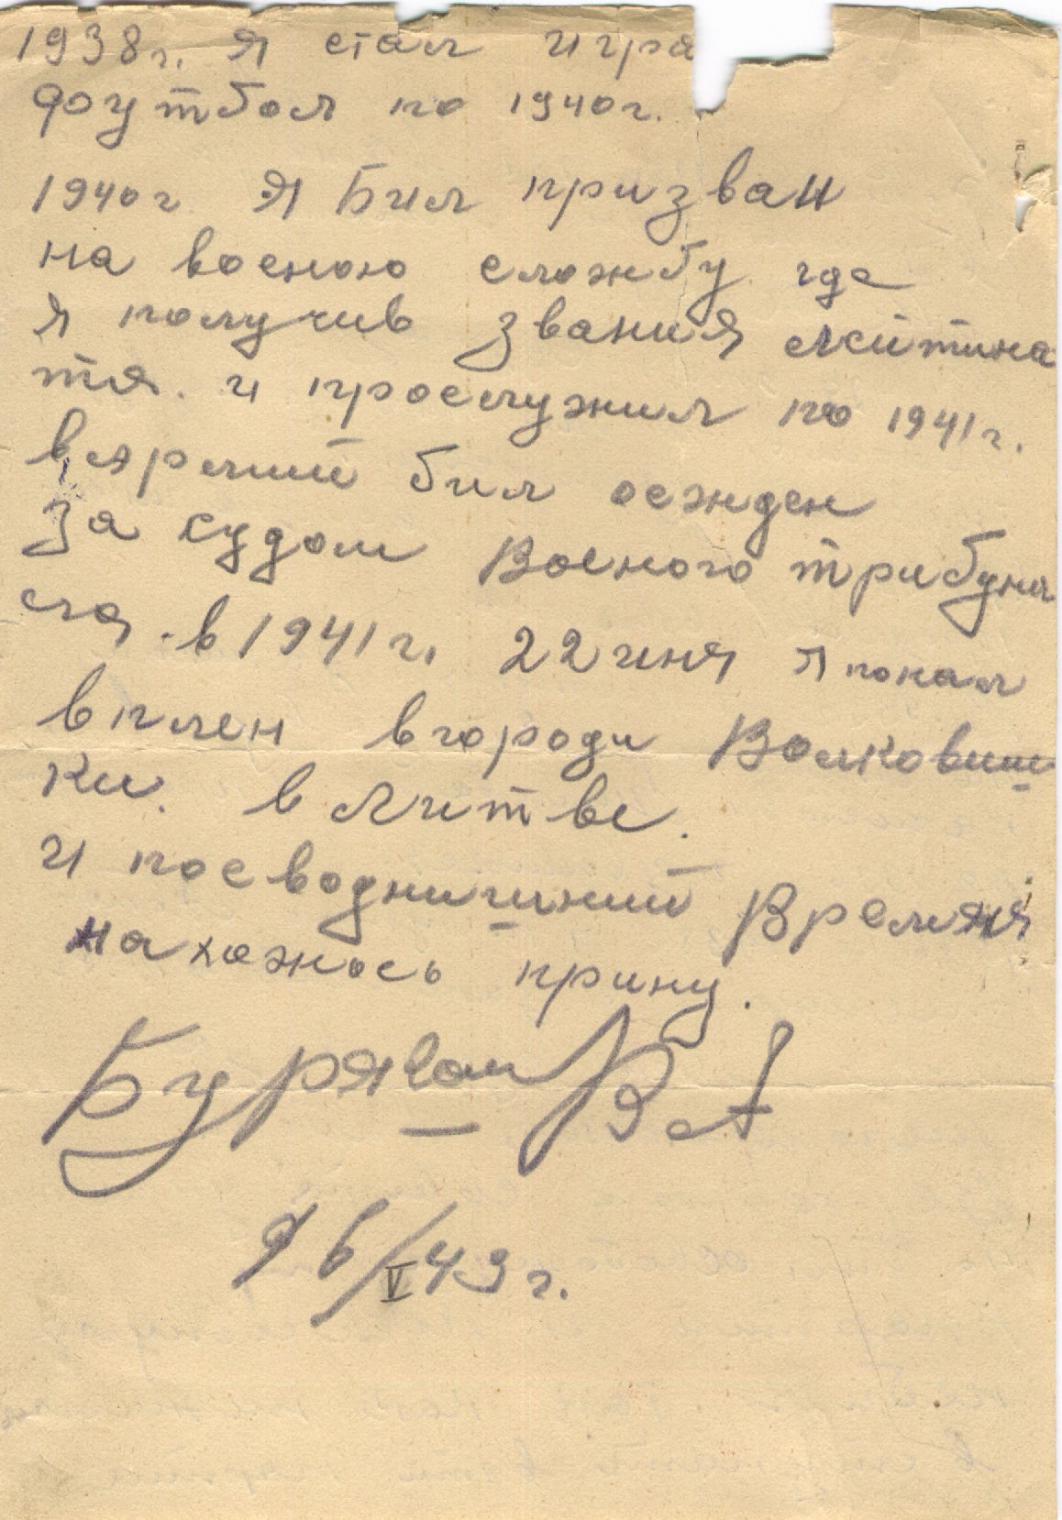 1938г. я стал игра
футбол по 1940г.
1940г я Бил призван
на военою сложбу где
я получив звания лейтина
тя. и прослужил по 1941г.
бил осжден
За судом Военого трибуна
ла. в 1941г. 22 иня я попал
в плен в городи Волковиш
ки. в Литве.
и по сводништний Время
нахожось прину.
Бурячом В А
96/V 43г.